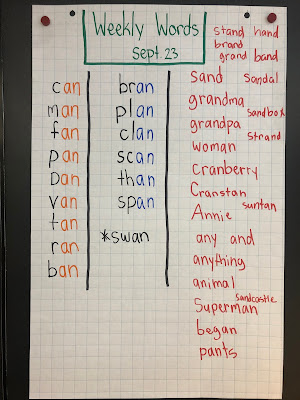 Weekly Words
Sept. 23
can
man
fan
pan
Dan
van
tan
ran
ban
bran
plan
clan
scan
than
span
*swan
stand hand
brand
grand band
sand sandal
grandma
sandbox
grandpa
strand
woman
Cranberry
Cranstan
suntan
Annie
any and
anything
animal
sandcastle
Superman
began
pants